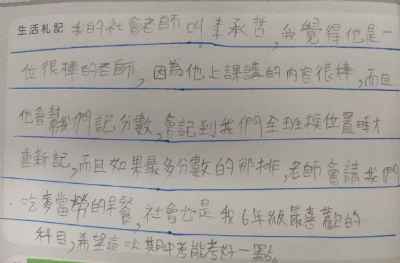 生活札記 我的社會老師叫李承哲,我覺得他是一
位很棒的老師,因為他上課講的內容很棒,而且
他會幫我們記分數,會記到我們全班換位置時才
重新記,而且如果最多分數的那排,老師會請我們
吃麥當勞的早餐,社會也是我6年級最喜歡的
科目,希望這一次期中考能考好一點。